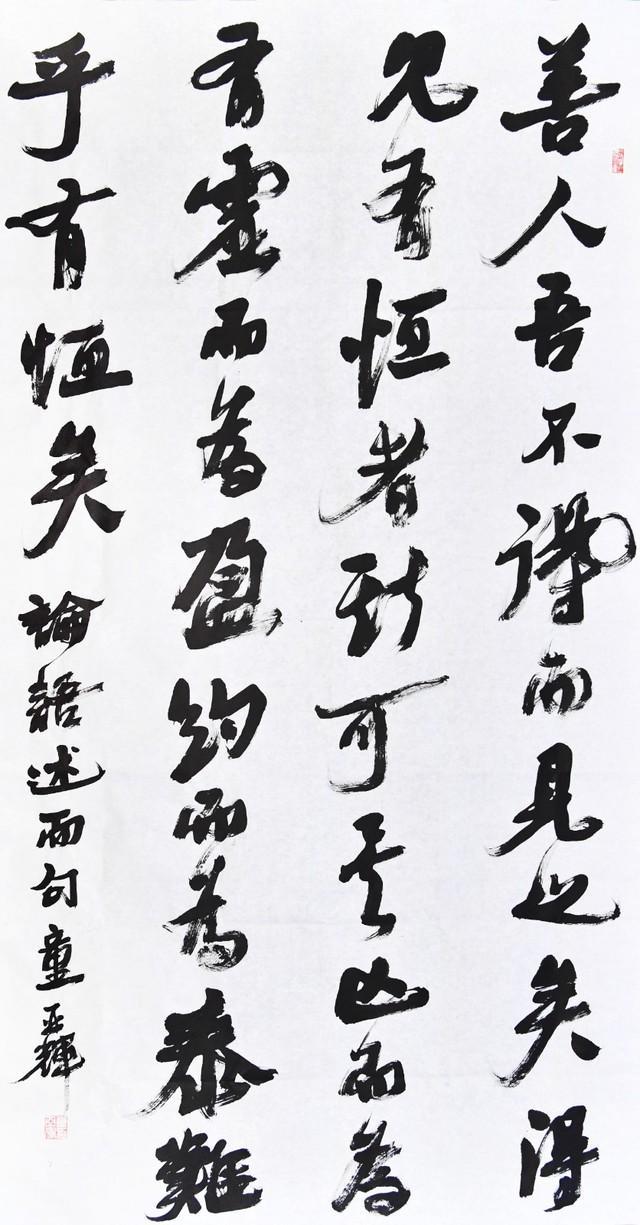 善人吾不得而見之矣得
见有恒者斯可矣亾而為
有虛而為盈約而為泰難
乎有恒矣
論語述而句童亞輝